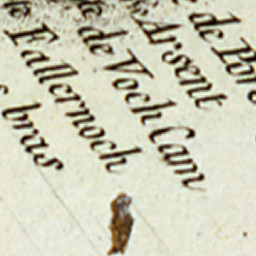 de Por
Arsent
de Voch Cam
Fallernoch
bras